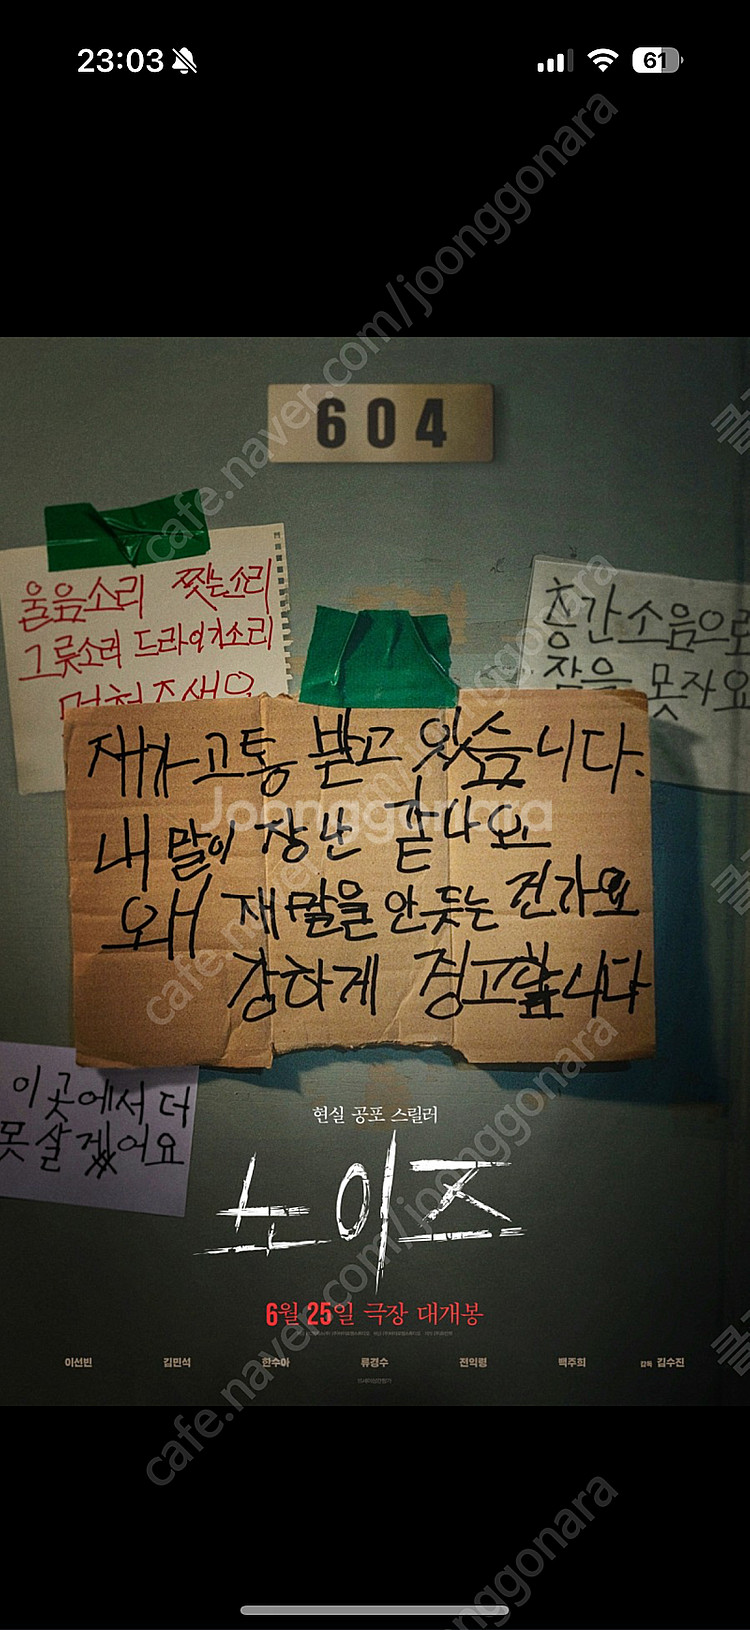 23:03
61
604
울음소리 찢는소리
그릇소리 드라이기소리
멈춰주세요
층간소음으로
잠을 못자요
재가 고통 받고 있습니다.
내 말이 장난 같나요
왜 재 말을 안 듣는 건가요
강하게 경고합니다
이곳에서 더
못살겠어요
현실 공포 스릴러
노이즈
6월 25일 극장 대개봉
이선빈 김민석 한수아 류경수 전익령 백주희 감독 김수진
Joonggonara
cafe.naver.com/joonggonara
cafe.naver.com/joonggonara
cafe.naver.com/joonggonara